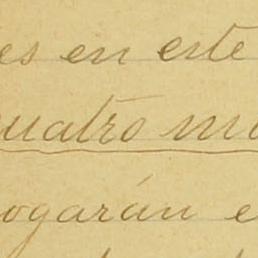 es en este
cuatro
ogarán e